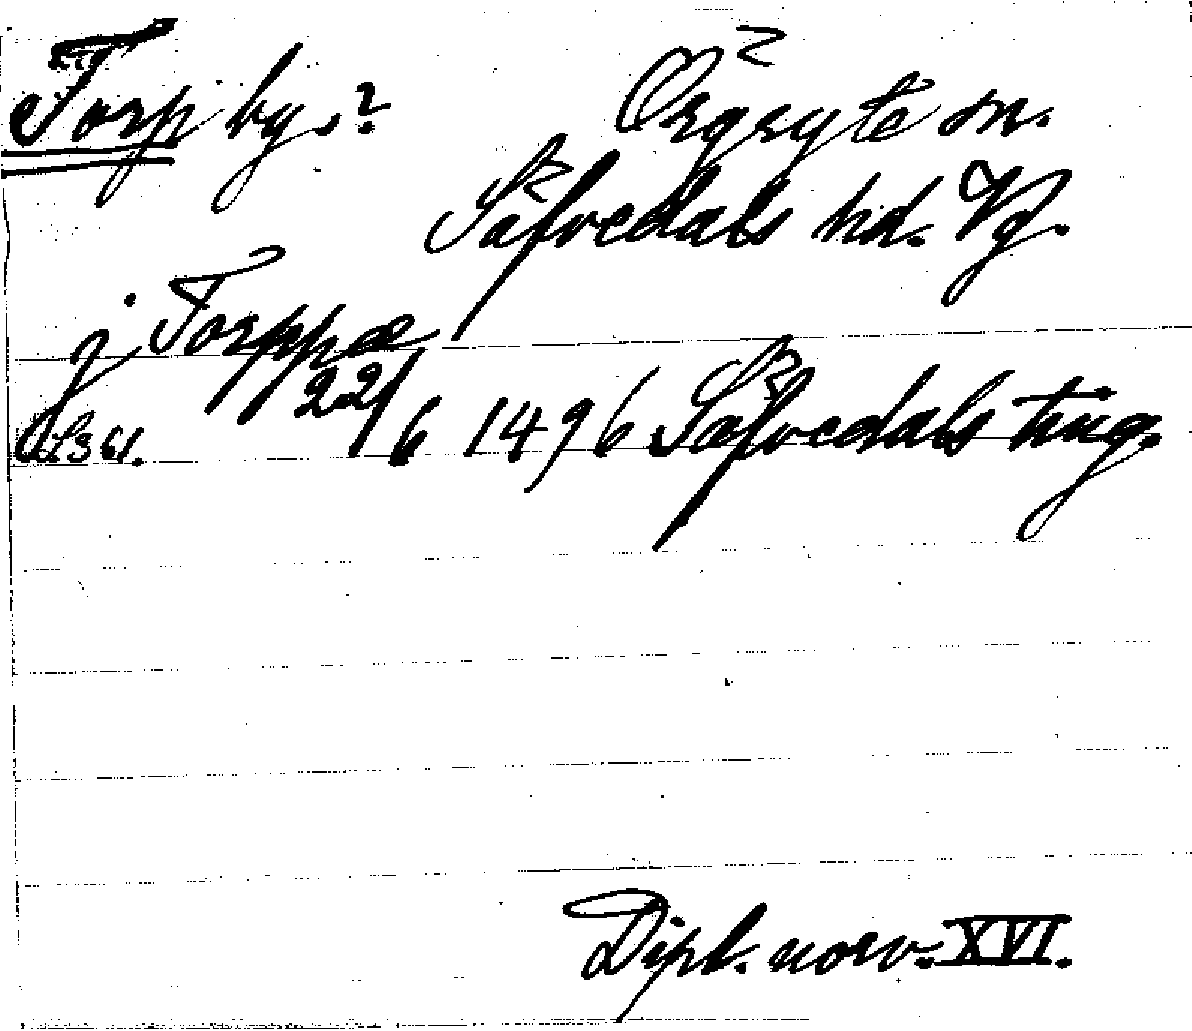 Torp by.? Örgryte sn.
Säfvedals hd. Vg.
j Torppæ
22/6 1496 Säfvedals ting.
s. 361.
Dipl. norv. XVI.